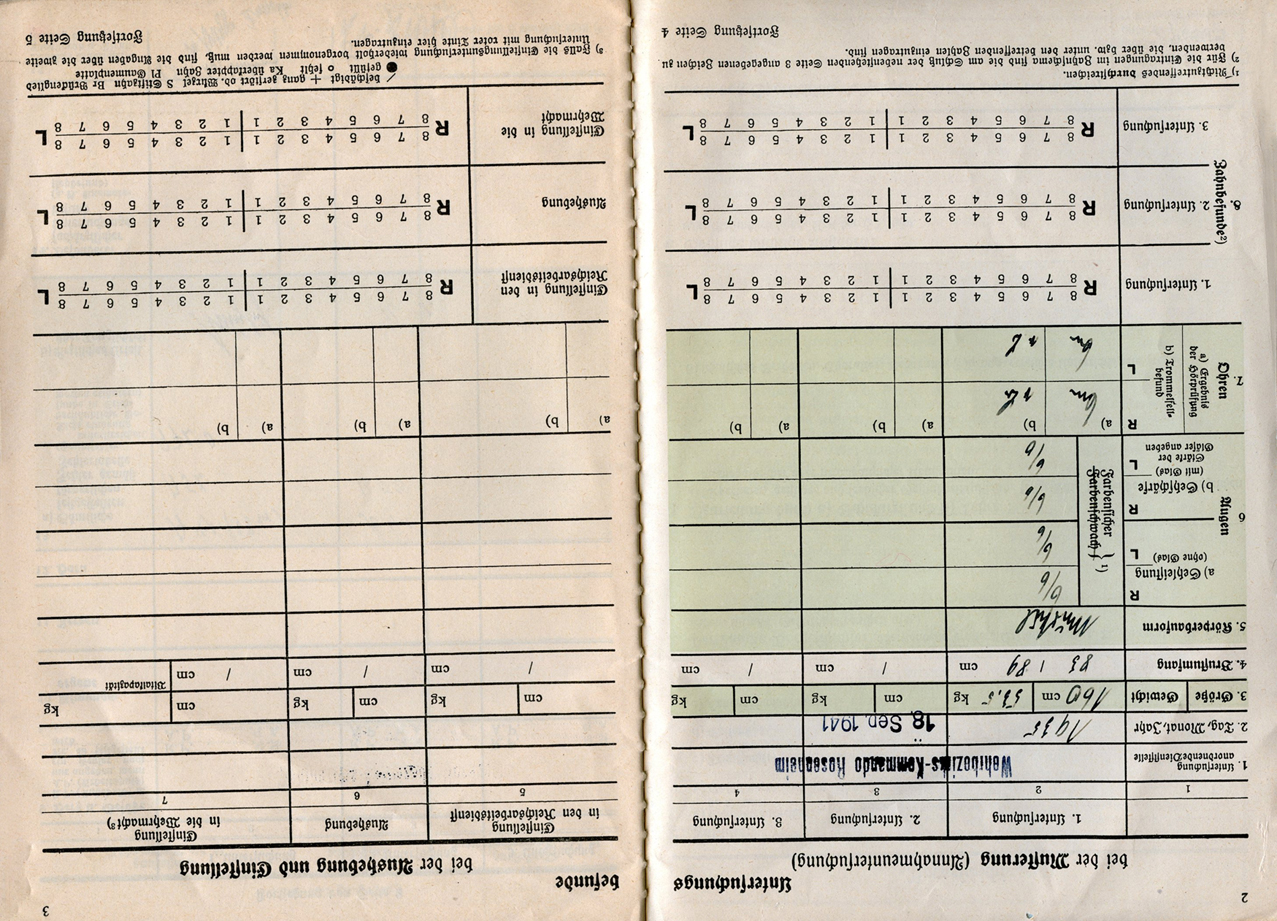 2
Untersuchungs
bei der Musterung (Annahmeuntersuchung)
1. Untersuchung 2. Untersuchung 3. Untersuchung
1 2 3 4
1. Untersuchung
anordnende Dienststelle
Wehrbezirks-Kommando Rosenheim
2. Tag, Monat, Jahr 1935 18. Sep. 1941
3. Größe Gewicht 160 cm 53,5 kg cm kg cm kg
4. Brustumfang 83 / 89 cm / cm / cm
5. Körperbauform
6 Augen
a) Sehleistung
(ohne Glas)
R 6/6
L 6/6
b) Sehschärfe
(mit Glas)
Stärke der
Gläser angeben
R 6/6
L 6/6
Farbensicher
Farbenschwach } ¹)
7. Ohren
a) Ergebnis
der Hörprüfung
b) Trommelfell-
befund
R a) 6m b) a) b) a) b)
L 6m
8. Zahnbefunde²)
1. Untersuchung
R 8 7 6 5 4 3 2 1 | 1 2 3 4 5 6 7 8 L
8 7 6 5 4 3 2 1 | 1 2 3 4 5 6 7 8
2. Untersuchung
R 8 7 6 5 4 3 2 1 | 1 2 3 4 5 6 7 8 L
8 7 6 5 4 3 2 1 | 1 2 3 4 5 6 7 8
3. Untersuchung
R 8 7 6 5 4 3 2 1 | 1 2 3 4 5 6 7 8 L
8 7 6 5 4 3 2 1 | 1 2 3 4 5 6 7 8
¹) Nichtzutreffendes durchstreichen.
²) Für die Eintragungen im Zahnschema sind die am Schluß der nebenstehenden Seite 3 angegebenen Zeichen zu
verwenden, die über bzw. unter den betreffenden Zahlen einzutragen sind.
Fortsetzung Seite 4
3
befunde
bei der Aushebung und Einstellung
Einstellung
in den Reichsarbeitsdienst
Aushebung
Einstellung
in die Wehrmacht³)
5 6 7
cm kg cm kg cm kg
/ cm / cm / cm Vitalkapazität
a) b) a) b) a) b)
Einstellung in den
Reichsarbeitsdienst
R 8 7 6 5 4 3 2 1 | 1 2 3 4 5 6 7 8 L
8 7 6 5 4 3 2 1 | 1 2 3 4 5 6 7 8
Aushebung
R 8 7 6 5 4 3 2 1 | 1 2 3 4 5 6 7 8 L
8 7 6 5 4 3 2 1 | 1 2 3 4 5 6 7 8
Einstellung in die
Wehrmacht
R 8 7 6 5 4 3 2 1 | 1 2 3 4 5 6 7 8 L
8 7 6 5 4 3 2 1 | 1 2 3 4 5 6 7 8
/ beschädigt + ganz zerstört od. Wurzel S Stiftzahn Br Brückenglieb
● gefüllt o fehlt Ka überkappter Zahn Pl Gaumenplatte
³) Falls die Einstellungsuntersuchung wiederholt vorgenommen werden muß, sind die Angaben über die zweite
Untersuchung mit roter Tinte hier einzutragen.
Fortsetzung Seite 5